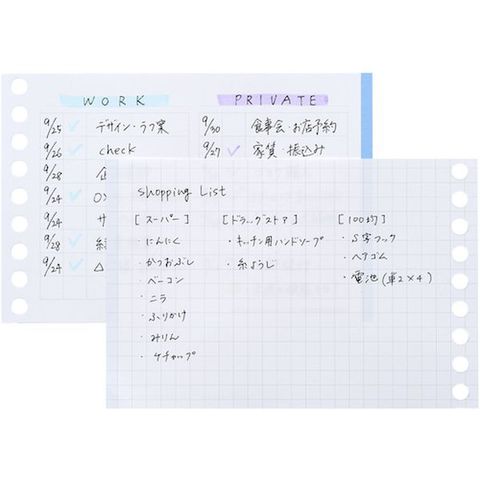 WORK
PRIVATE
9/25 ✓ デザイン・ラフ案
9/30 食事会・お店予約
9/26 ✓ check
9/27 ✓ 家賃・振込み
9/28
9/24 ✓
9/24
9/28 ✓
9/24 ✓ △
Shopping List
[スーパー]
・にんにく
・かつおぶし
・ベーコン
・ニラ
・ふりかけ
・みりん
・ケチャップ
[ドラッグストア]
・キッチン用ハンドソープ
・糸ようじ
[100均]
・S字フック
・ヘアゴム
・電池(単2×4)